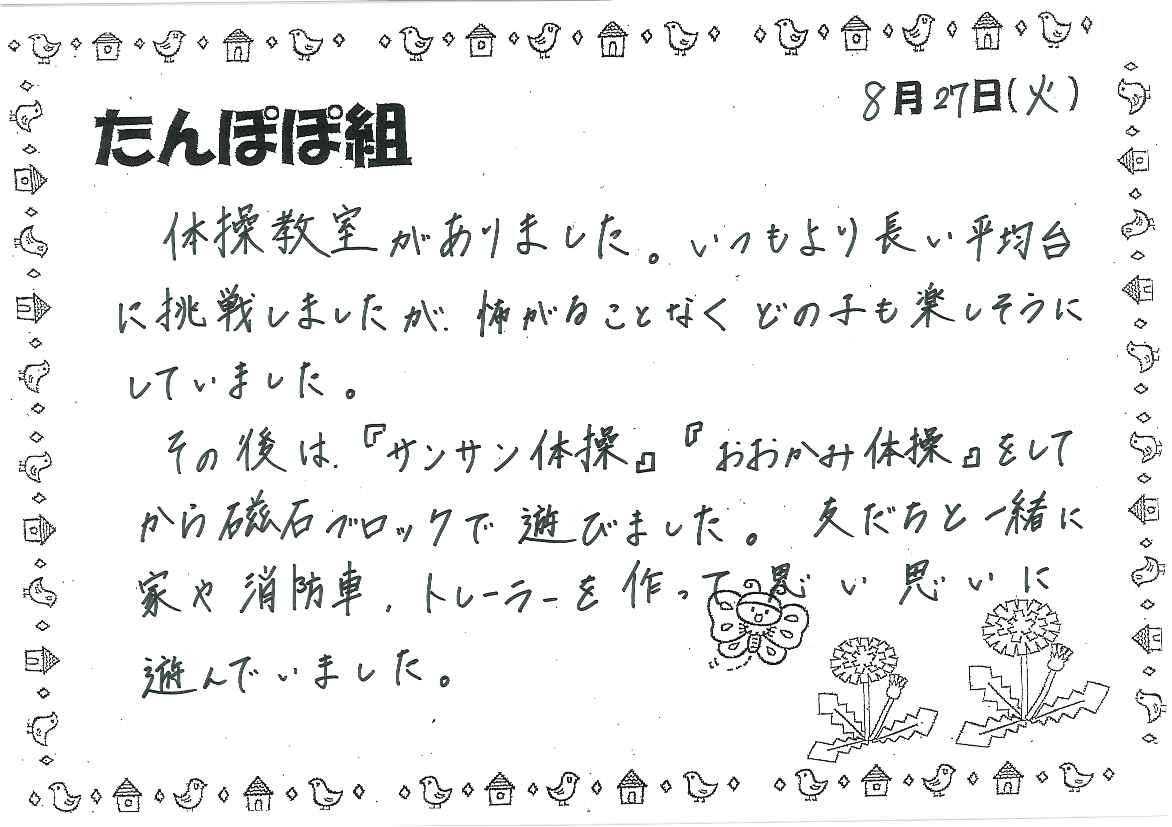 8月27日(火)
たんぽぽ組
体操教室がありました。いつもより長い平均台
に挑戦しましたが、怖がることなくどの子も楽しそうに
していました。
その後は、『サンサン体操』『おおかみ体操』をして
から磁石ブロックで遊びました。友だちと一緒に
家や消防車、トレーラーを作って思い思いに
遊んでいました。